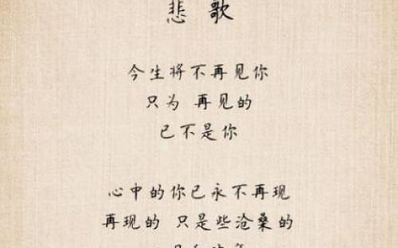 悲歌
今生将不再见你
只为 再见的
已不是你
心中的你已永不再现
再现的 只是些沧桑的